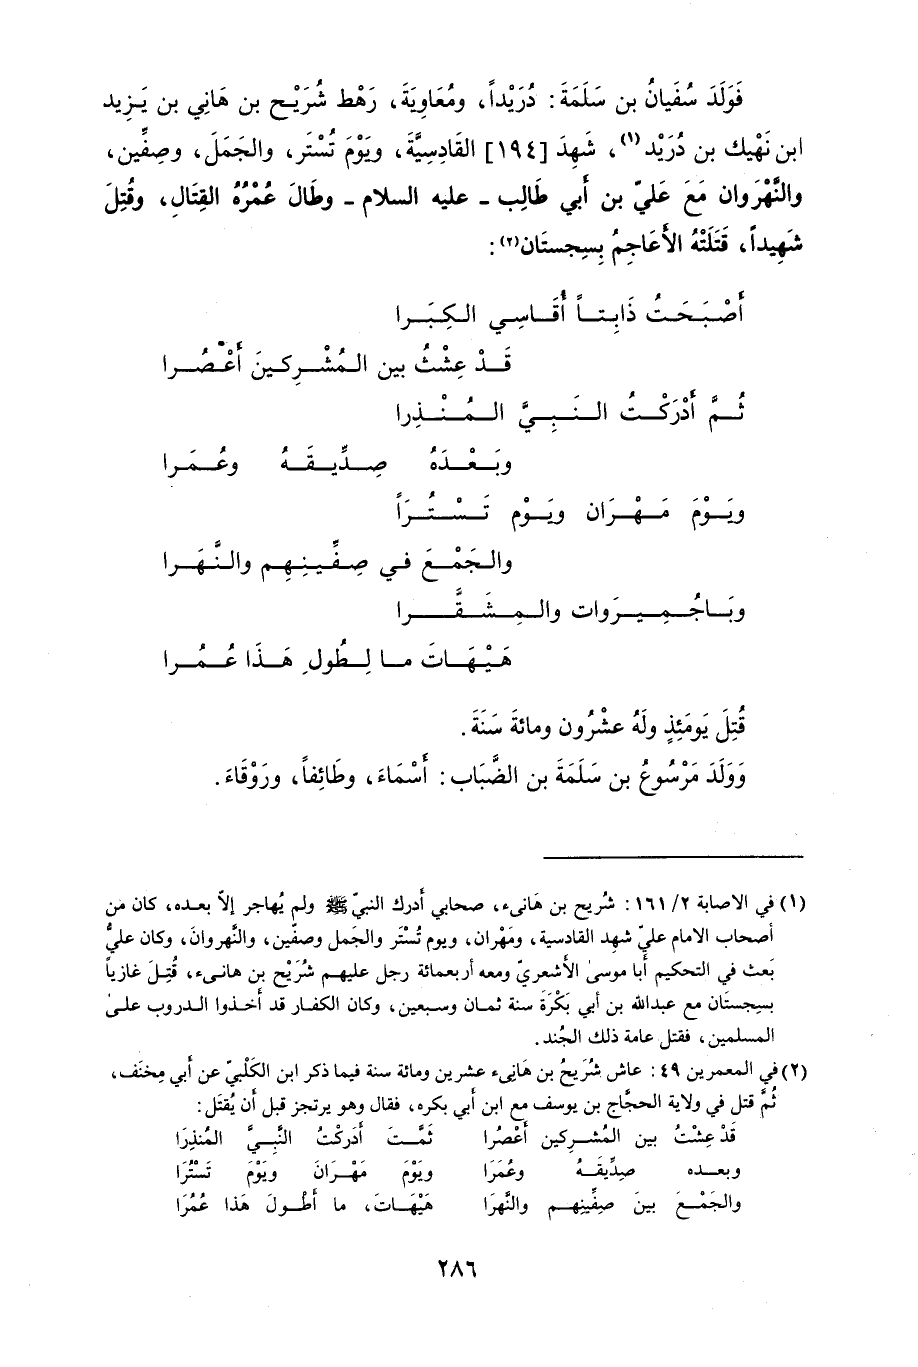 فَوَلَدَ سُفَيانُ بن سَلَمَةَ: دُرَيْداً، ومُعَاوِيَةَ، رَهْط شُرَيْح بن هَانِي بن يَزِيد
ابن نَهْيك بن دُرَيْد(١)، شَهِدَ [١٩٤] القَادِسِيَّةَ، ويَوْمَ تُسْتَر، والجَمَلَ، وصِفِّين،
والنَّهْرَوان مَعَ عَليّ بن أبي طَالِب - عليه السلام - وطَالَ عُمْرُهُ القِتَال، وقُتِلَ
شَهِيداً، قَتَلَتْهُ الأَعَاجِمُ بِسِجِستَان(٢):
أَصْبَحَتُ ذَابِتاً أُقَاسِي الكِبَرا
قَدْ عِشْتُ بين المُشْرِكينَ أَعْصُرا
ثُمَّ أَدْرَكْتُ النَبِيَّ المُنْذِرا
وبَعْدَهُ صِدِّيقَهُ وعُمَرا
ويَوْمَ مَهْرَان ويَوْم تَسْتُرَاً
والجَمْعَ في صِفِّينِهِم والنَّهَرا
وبَاجُمِيرَوات والمِشَقَّرا
هَيْهَاتَ ما لِطُولِ هَذَا عُمُرا
قُتِلَ يَومَئِذٍ ولَهُ عشْرُون ومائةَ سَنَةَ.
وَوَلَدَ مَرْسُوعُ بن سَلَمَةَ بن الضَّبَاب: أَسْمَاءَ، وطَائِفاً، ورَوْقَاءَ.
(١) في الاصابة ٢/ ١٦١: شُريح بن هَانىء، صحابي أدرك النبيّ ﷺ ولم يُهاجر إلاّ بعده، كان من
أصحاب الامام عليّ شهد القادسية، ومَهْران، ويوم تُسْتَر والجَمل وصفّين، والنَّهروانَ، وكان عليٌّ
بَعث في التحكيم أبا موسىٰ الأشعريّ ومعه أربعمائة رجل عليهم شُرَيْح بن هانىء، قُتِلَ غازياً
بسِجستَان مع عبدالله بن أبي بَكْرَةَ سنة ثمان وسبعين، وكان الكفار قد أخذوا الدروب علىٰ
المسلمين، فقتل عامة ذلك الجُند.
(٢) في المعمرين ٤٩: عاش شُرَيحُ بن هَانِىء عشرين ومائة سنة فيما ذكر ابن الكَلْبيّ عن أبي مِخنَف،
ثُمَّ قتل في ولاية الحجَّاج بن يوسف مع ابن أبي بكره، فقال وهو يرتجز قبل أن يُقتَل:
قَدْ عِشْتُ بين المُشركين أَعْصُرا ثَمَّتَ أَدَركْتُ النَّبيَّ المُنذِرَا
وبعده صِدِّيقَهُ وعُمَرَا ويَوْمَ مَهْرَانَ ويَوْمَ تَسْتُرَا
والجَمْعَ بينَ صِفِّينهم والنَّهرَا هَيْهَاتَ، ما أَطولَ هَذا عُمُرَا
٢٨٦